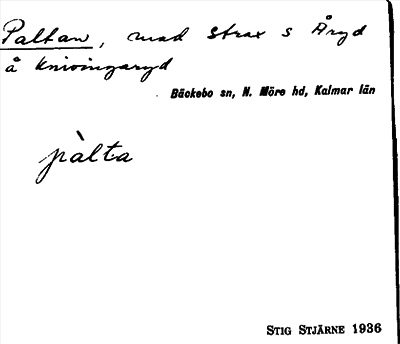 Paltan, mad strax s Åryd
å Knivingaryd
Bäckebo sn, N. Möre hd, Kalmar län
pàlta
STIG STJÄRNE 1936